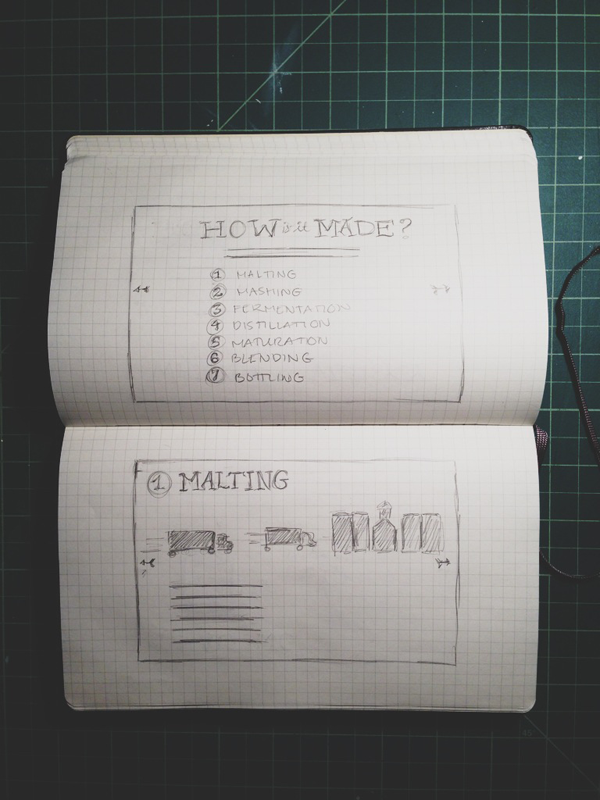 HOW is it MADE?
1 MALTING
2 MASHING
3 FERMENTATION
4 DISTILLATION
5 MATURATION
6 BLENDING
7 BOTTLING
1 MALTING